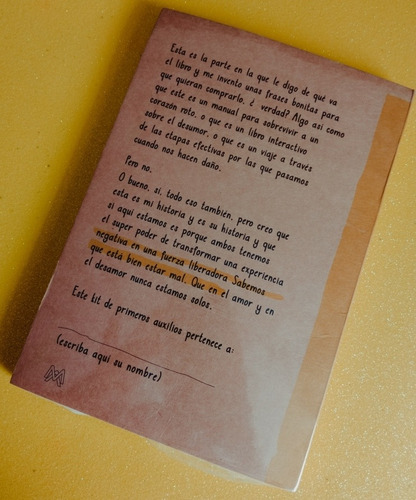 Esta es la parte en la que le digo de qué va
el libro y me invento unas frases bonitas para
que quieran comprarlo, ¿ verdad? Algo así como
que este es un manual para sobrevivir a un
corazón roto, o que es un libro interactivo
sobre el desamor, o que es un viaje a través
de las etapas efectivas por las que pasamos
cuando nos hacen daño.
Pero no.
O bueno, sí, todo eso también, pero creo que
esta es mi historia y es su historia y que
si aquí estamos es porque ambos tenemos
el super poder de transformar una experiencia
negativa en una fuerza liberadora Sabemos
que está bien estar mal. Que en el amor y en
el desamor nunca estamos solos.
Este kit de primeros auxilios pertenece a:
(escriba aquí su nombre)